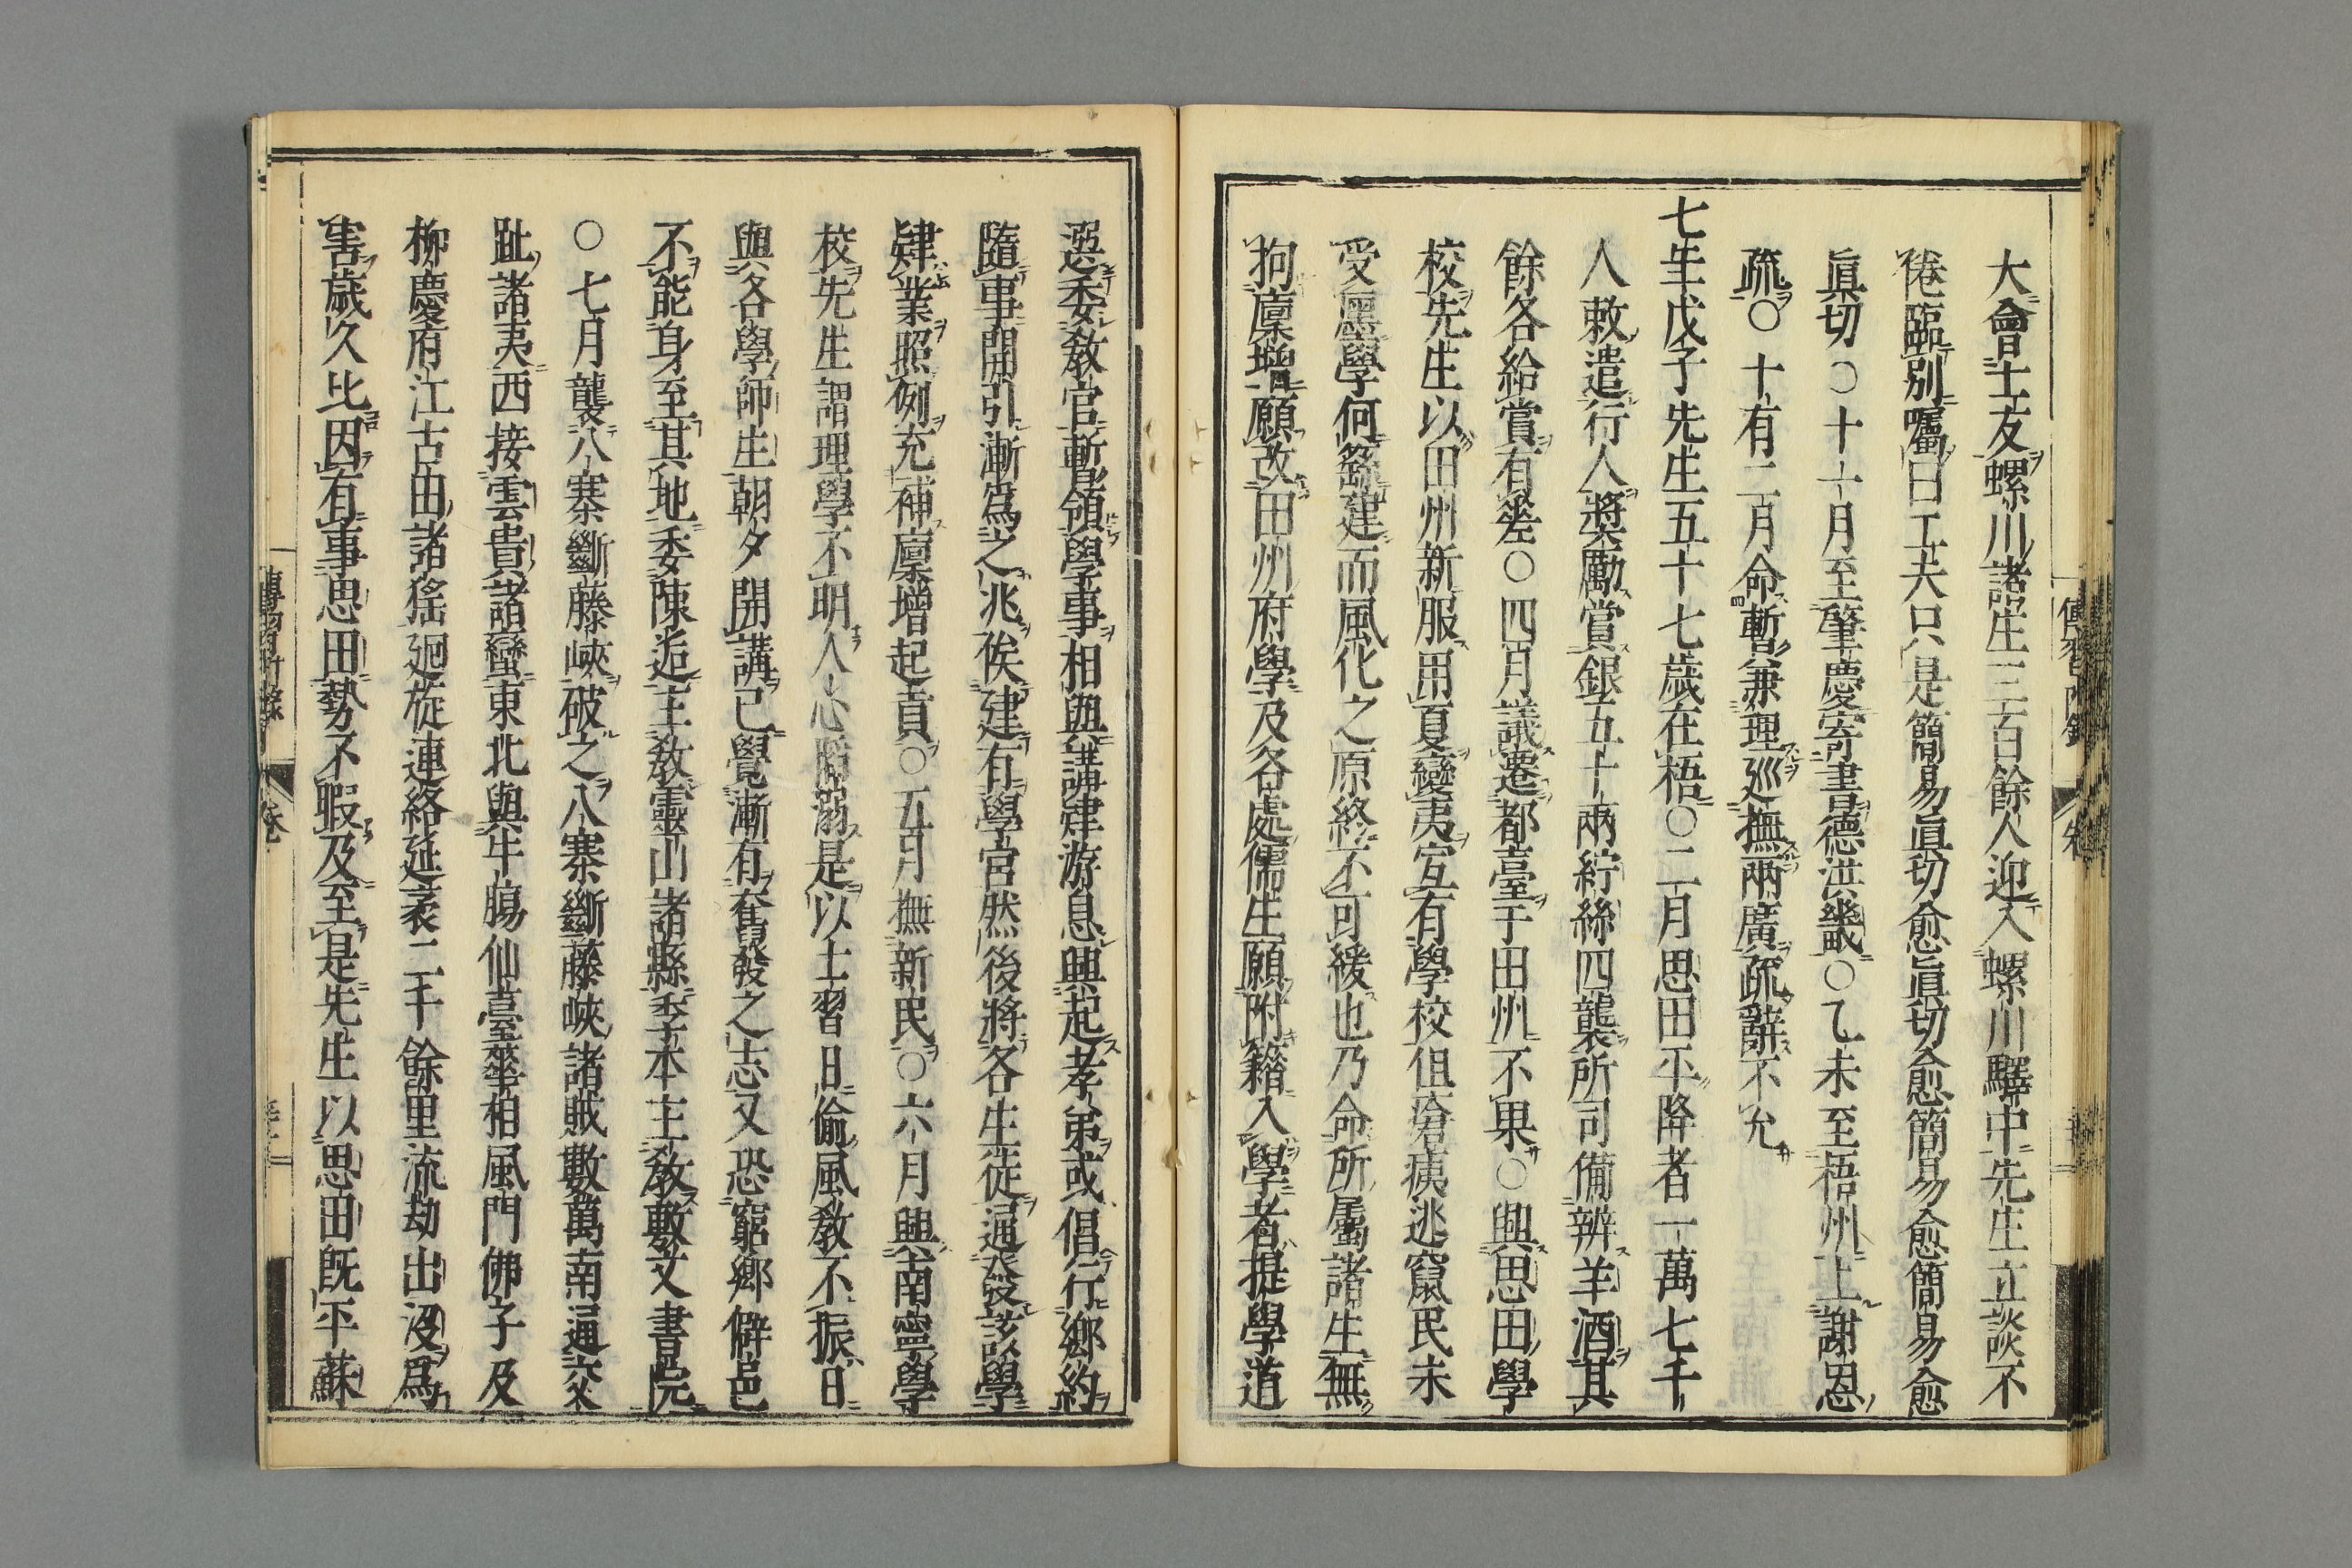 大會士友螺川諸生三百餘人迎入螺川驛中先生立談不
倦臨別囑曰工夫只是簡易眞切愈眞切愈簡易愈簡易愈
眞切○十十月至肇慶寄書德洪畿○乙未至梧州上謝恩
疏○十有二月命暫兼理巡撫兩廣疏辭不允
七年戊子先生五十七歲在梧○二月思田平降者一萬七千
人敕遣行人獎勵賞銀五十兩紵絲四襲所司備辨羊酒其
餘各給賞有差○四月議遷都臺于田州不果○興思田學
校先生以田州新服用夏變夷宜有學校但瘡痍逃竄民未
受廛學何緣建而風化之原終不可緩也乃命所屬諸生無
拘廩增願改田州府學及各處儒生願附籍入學者提學道
選委敎官暫領學事相與講肄游息興起孝弟或倡行鄉約
隨事開引漸爲之兆俟建有學宮然後將各生徒通發該學
肄業照例充補廩增起貢○五月撫新民○六月興南寧學
校先生謂理學不明人心陷溺是以士習日偷風敎不振日
與各學師生朝夕開講已覺漸有奮發之志又恐窮鄉僻邑
不能身至其地委陳逅主敎靈山諸縣季本主敎敷文書院
○七月襲八寨斷藤峽破之八寨斷藤峽諸賊數萬南通交
趾諸夷西接雲貴諸蠻東北與牛膓仙臺花相風門佛子及
柳慶府江古田諸猺廻旋連絡延袤二千餘里流劫出沒爲
害歲久比因有事思田勢不暇及至是先生以思田旣平蘇
傳習附錄 卷
傳習附錄 卷